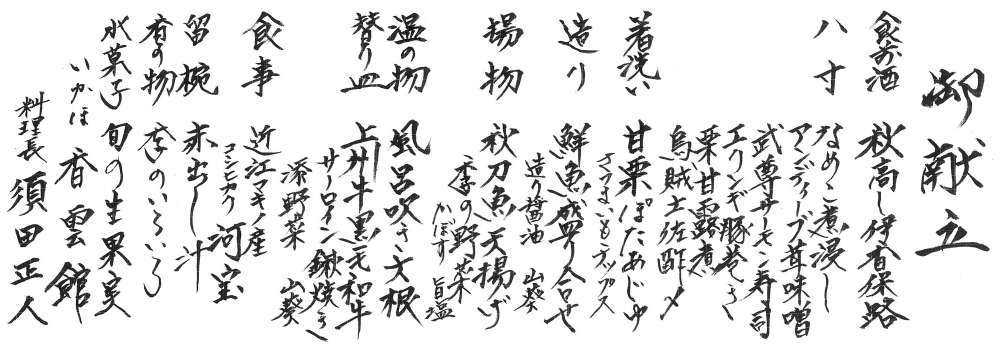 御献立
食前酒 秋高し伊香保路
八寸 なめこ煮浸し
アンディーブ茸味噌
武尊サーモン寿司
エリンギ豚巻き
栗甘露煮
烏賊土佐酢〆
箸洗い 甘栗ぽたあじゅ
さつまいもチップス
造り 鮮魚盛り合せ
造り醤油 山葵
揚物 秋刀魚天揚げ
季の野菜
かぼす 旨塩
温の物 風呂吹き大根
替り皿 上州牛黒毛和牛
サーロイン鍬焼き
添野菜 山葵
食事 近江マキノ産
コシヒカリ 河宝
留椀 赤出し汁
香の物 季のいろいろ
水菓子 旬の生果実
いかほ 香雲館
料理長 須田正人